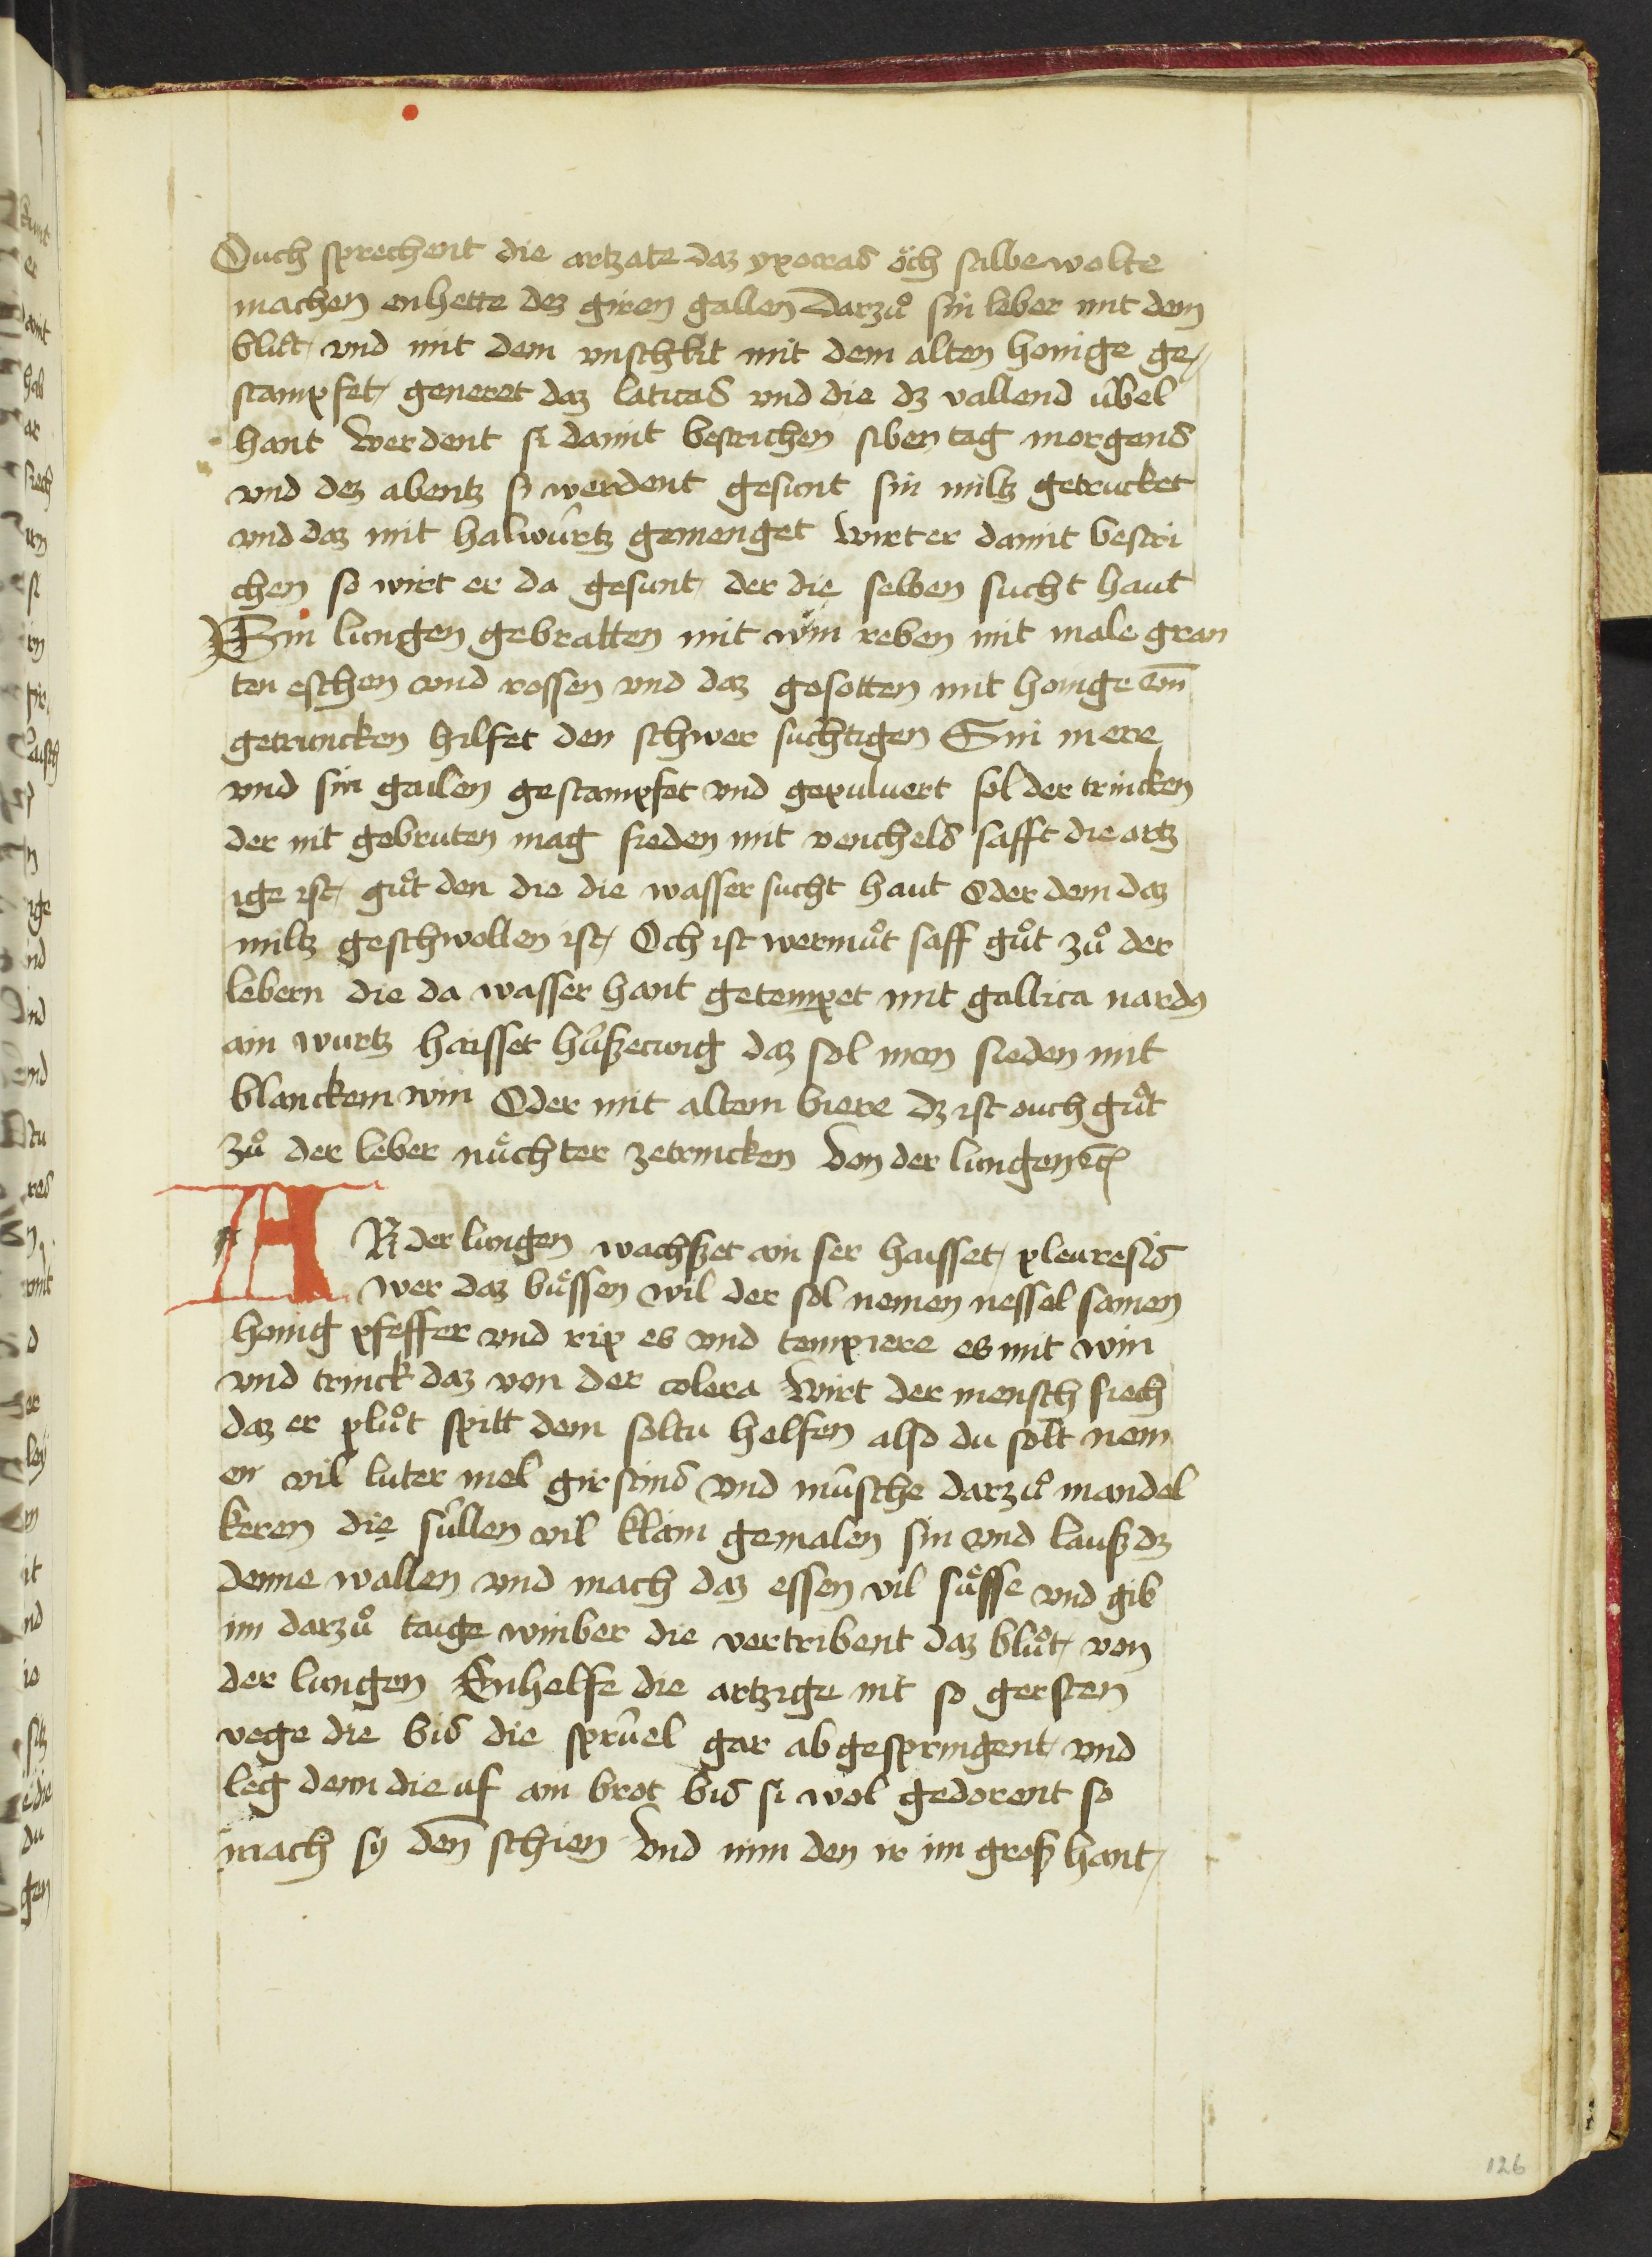 Ouch sprechent die artzate daz ypocras öch salbe wolte
machen enhette dez giren gallen Darzů sin leber mit dem
blůt vnd mit dem vnschlit mit dem alten honige ge⸗
stampfet generet daz laticas vnd die dz vallend úbel
hant Werdent si damit bestrichen siben tag morgens
vnd dez abentz si werdent gesunt sin miltz getrucket
vnd daz mit halwurtz gemenget Wirt er damit bestri
chen so wirt er da gesunt der die selben sucht haut
Sin lungen gebratten mit win reben mit male gran
ten eschen vnd rossen vnd daz gesotten mit honige
getruncken hilfet den schwer suchtigen Sin mere
vnd sin gailen gestampfet vnd gepuluert sol der trincken
der nit gebruten mag sieden mit venchels safft die artz
ige ist gůt den die die wasser sucht haut Oder dem daz
miltz geschwollen ist Och ist wermůt saff gůt zů der
lebern die da wasser hant getempet mit gallica nardꝯ
ain wurtz haisset huszecwig daz sol men sieden mit
blanckem win Oder mit altem biere dz ist ouch gůt
zů der leber nüchter zetrincken Von der lungen
AN der lungen wachszet ain ser haisset pleuresis
wer daz büssen wil der sol nemen nessel samen
honig pfeffer vnd rip es vnd tempiere es mit win
vnd trinck daz von der colera Wirt der mensch siech
daz er plůt spitt dem soltu helfen also du solt nem
en vil luter mel girstins vnd müsche darzů mandel
keren die süllen vil klain gemalen sin vnd lausz dz
denne wallen vnd mach daz essen vil süsse vnd gib
im darzů taige winber die vertribent daz blůt von
der lungen Enhelfe die artzige nit so gersten
vege die bis die sprüel gar ab gespringent vnd
leg denn die uf ain brot bis si wol gedorent so
mach sy den̄ schien Vnd nim den ir im grosz hant
126